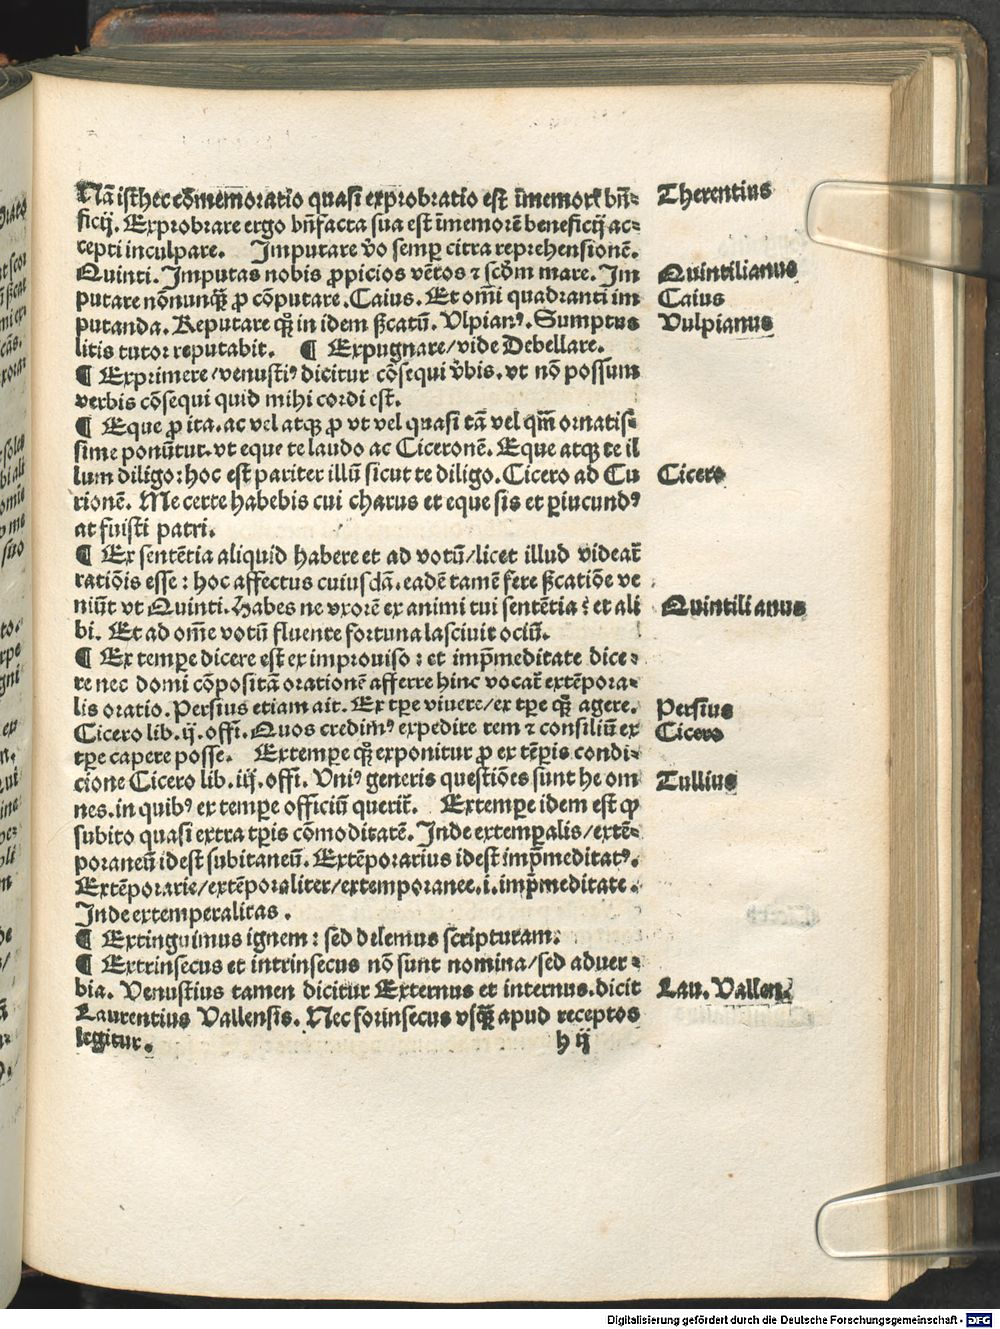 Nā isthec cōmemoratio quasi exprobratio est īmemorꝭ bn̄-
ficij. Exprobrare ergo bn̄facta sua est īmemorē beneficij ac-
cepti inculpare. Imputare v̄o semꝑ citra reprehensionē.
Quinti. Imputas nobis ꝓpicios vētos ⁊ scōm mare. Im
putare nōnunqꝫ̄ ꝓ cōputare. Caius. Et om̄i quadranti im
putanda. Reputare qꝫ̄ in idem ßcatū. Vlpianꝰ. Sumptus
litis tutor reputabit. ¶ Expugnare/vide Debellare.
¶ Exprimere/venustiꝰ dicitur cōsequi v̄bis. vt nō possum
verbis cōsequi quid mihi cordi est.
¶ Eque ꝓ ita. ac vel atqꝫ ꝓ vt vel quasi tā vel qm̄ ornatis-
sime ponūtur. vt eque te laudo ac Ciceronē. Eque atqꝫ te il
lum diligo: hoc est pariter illū sicut te diligo. Cicero ad Cu
rionē. Me certe habebis cui charus et eque sis et ꝑiucundꝰ
at fuisti patri.
¶ Ex sentētia aliquid habere et ad votū/licet illud videat̄
ratiōis esse: hoc affectus cuiusdā. eadē tamē fere ßcatiōe ve
niūt vt Quinti. Habes ne vxorē ex animi tui sententia? et ali
bi. Et ad om̄e votū fluente fortuna lasciuit ociū.
¶ Ex tempe dicere est ex improuiso: et imp̄meditate dice-
re nec domi cōpositā orationē afferre hinc vocat̄ extēpora-
lis oratio. Persius etiam ait. Ex tꝑe viuere/ex tꝑe qꝫ̄ agere.
Cicero lib. ij. offi. Quos credimꝰ expedire rem ⁊ consiliū ex
tꝑe capere posse. Extempe qꝫ̄ exponitur ꝓ ex tēꝑis condi-
cione Cicero lib. iij. offi. Vniꝰ generis questiōes sunt he om
nes. in quibꝰ ex tempe officiū querit̄. Extempe idem est ꝙ
subito quasi extra tꝑis cōmoditatē. Inde extemꝑalis/extē-
poraneū id est subitaneū. Extēporarius id est imp̄meditatꝰ.
Extēporarie/extēporaliter/extemporanee. i. imp̄meditate.
Inde extemperalitas.
¶ Extinguimus ignem: sed delemus scripturam.
¶ Extrinsecus et intrinsecus nō sunt nomina/sed aduer-
bia. Venustius tamen dicitur Externus et internus. dicit
Laurentius Vallensis. Nec forinsecus vsqꝫ̄ apud receptos
legitur. h ij
Therentius
Quintilianus
Caius
Vulpianus
Cicero
Quintilianus
Persius
Cicero
Tullius
Lau. Vallen.
Digitalisierung gefördert durch die Deutsche Forschungsgemeinschaft - DFG